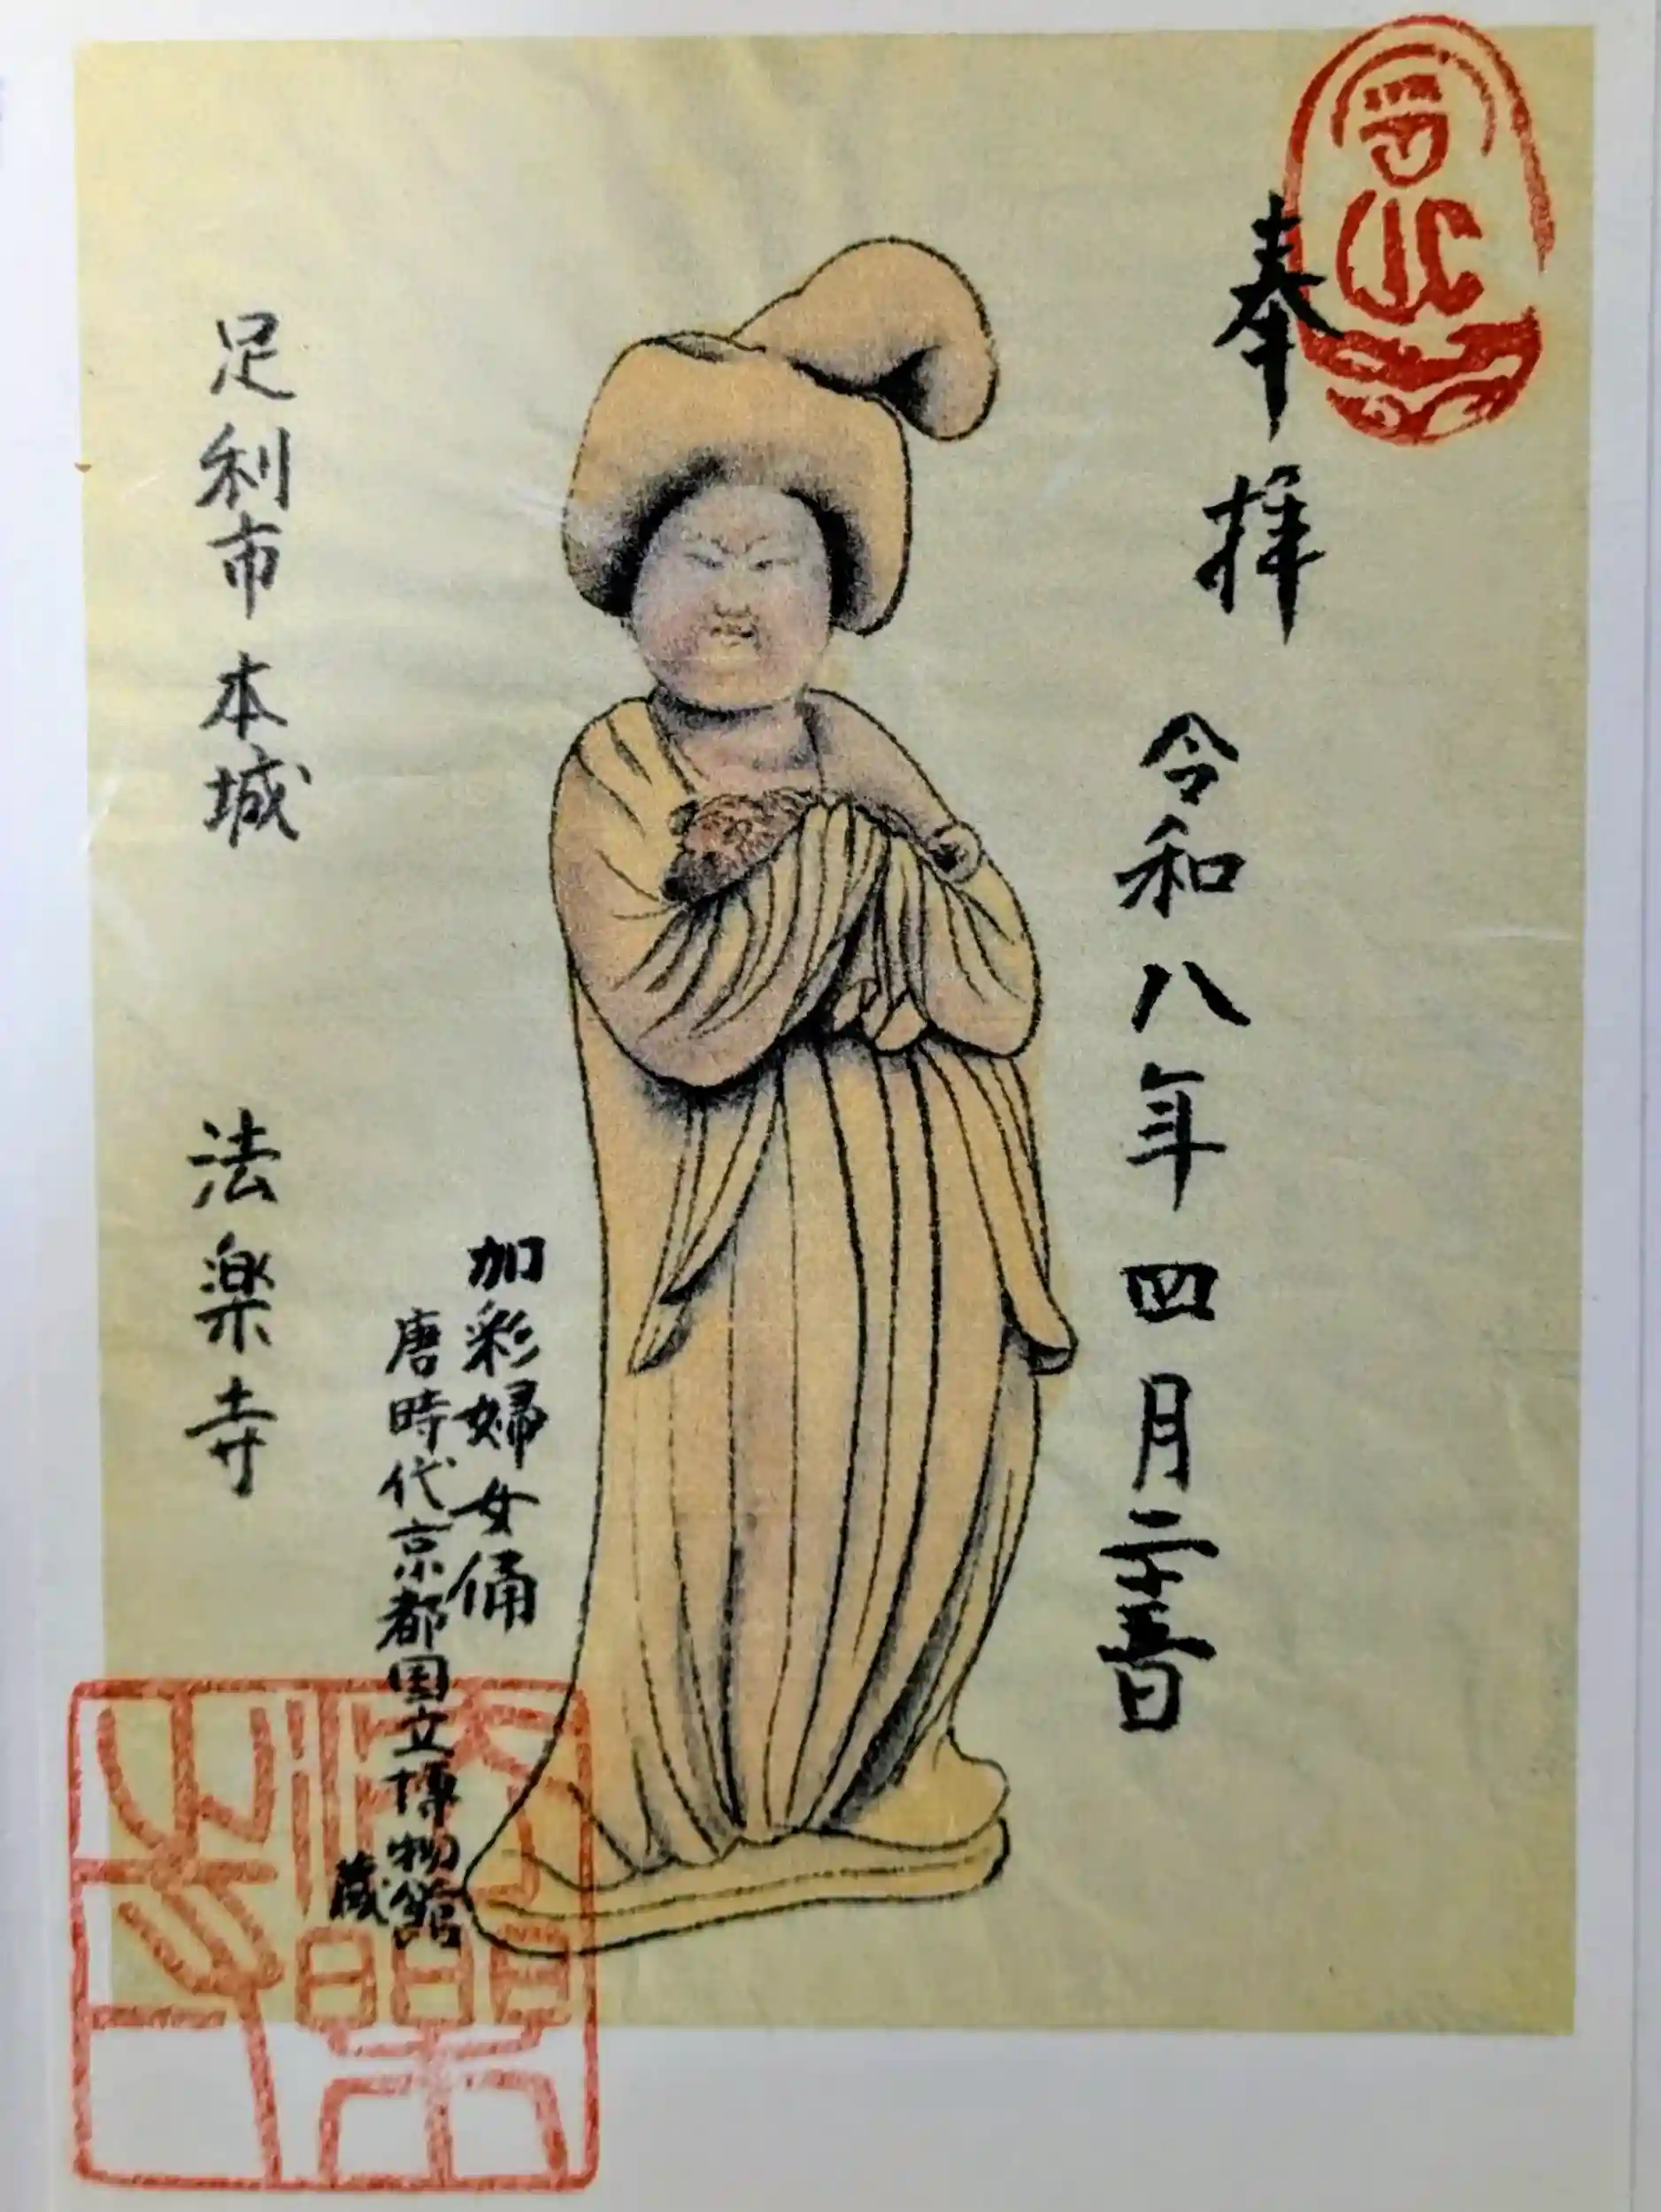 奉拝
令和八年四月二十五日
加彩婦女俑
唐時代京都国立博物館
蔵
足利市本城 法楽寺